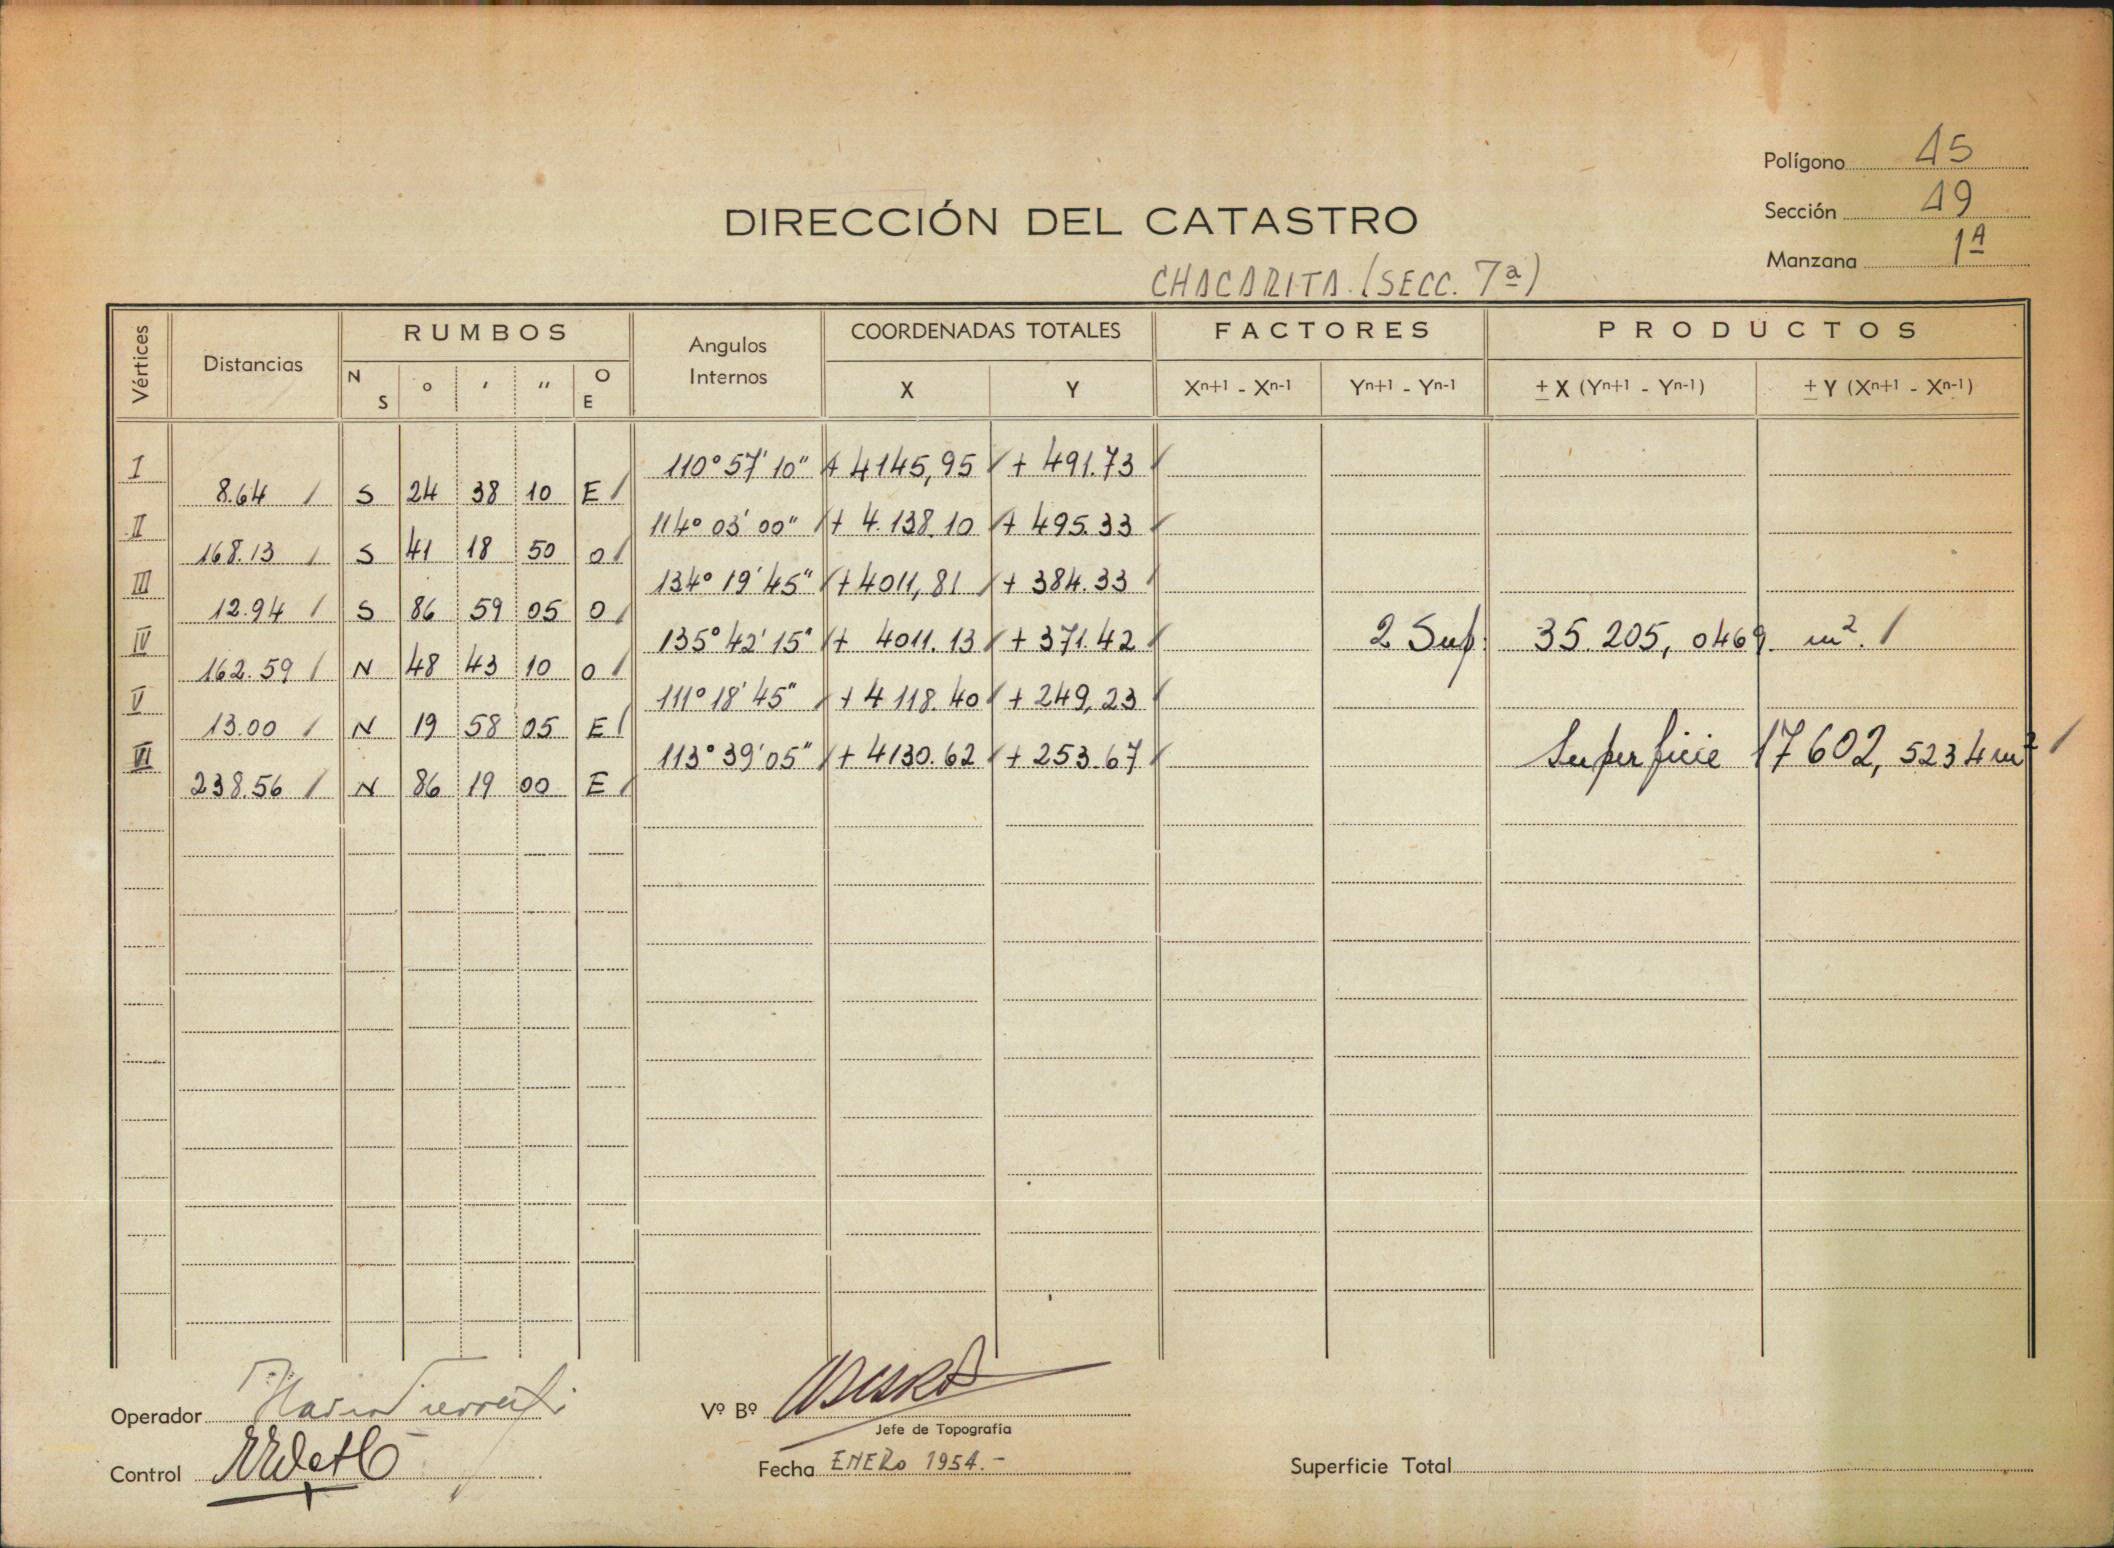 Polígono 45
Sección 49
Manzana 1ª
DIRECCIÓN DEL CATASTRO
CHACARITA. (SECC. 7ª)
Vértices Distancias RUMBOS Angulos Internos COORDENADAS TOTALES FACTORES PRODUCTOS
N S ° ' " O E X Y Xⁿ⁺¹ - Xⁿ⁻¹ Yⁿ⁺¹ - Yⁿ⁻¹ ± X (Yⁿ⁺¹ - Yⁿ⁻¹) ± Y (Xⁿ⁺¹ - Xⁿ⁻¹)
I 110° 57' 10" + 4145,95 + 491.73
8.64 S 24 38 10 E
II 114° 03' 00" + 4.138.10 + 495.33
168.13 S 41 18 50 O
III 134° 19' 45" + 4011,81 + 384.33
12.94 S 86 59 05 O
IV 135° 42' 15" + 4011.13 + 371.42 2 Sup. 35.205,0469 m².
162.59 N 48 43 10 O
V 111° 18' 45" + 4118.40 + 249,23
13.00 N 19 58 05 E
VI 113° 39' 05" + 4130.62 + 253.67 Superficie 17602,5234 m²
238.56 N 86 19 00 E
Operador
Vº Bº
Jefe de Topografía
Control
Fecha ENERO 1954.-
Superficie Total